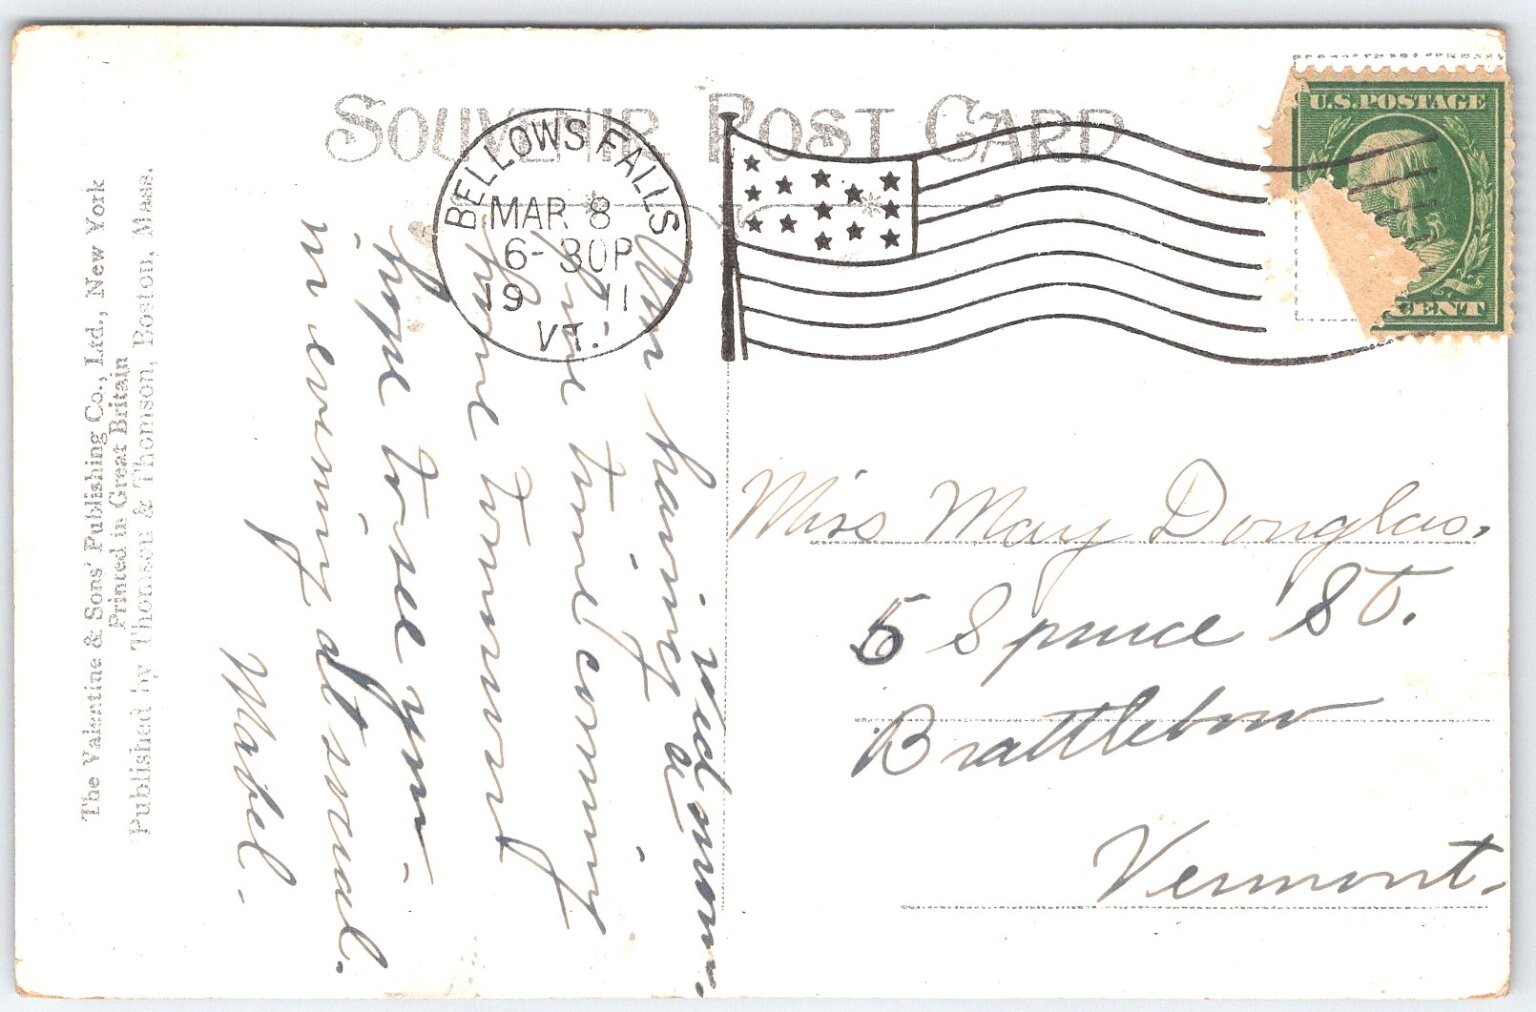 SOUVENIR POST CARD
BELLOWS FALLS
MAR 8
6-30P
1911
VT.
U.S. POSTAGE
CENT
Miss May Douglas,
5 Spruce St.
Brattleboro
Vermont.
Am having a
fine time coming
home tomorrow
hope to see you
in evening at usual.
Mabel.
The Valentine & Sons' Publishing Co., Ltd., New York
Printed in Great Britain
Published by Thomson & Thomson, Boston, Mass.